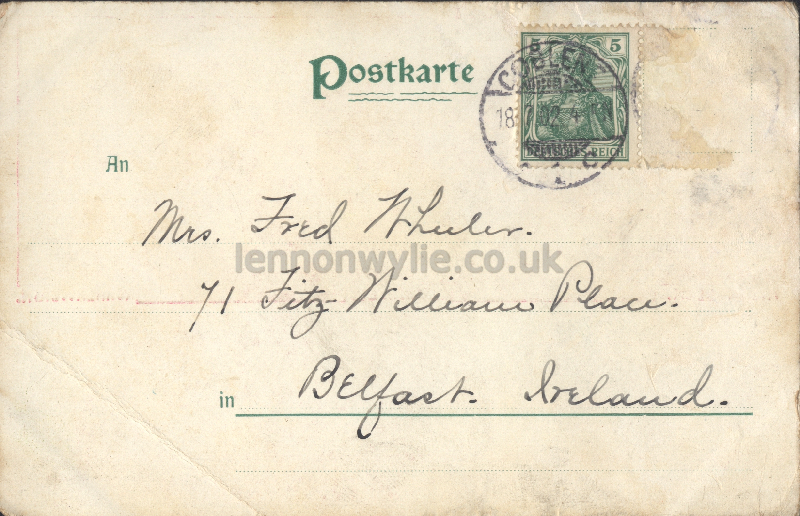 Postkarte
5 5
COBLENZ
18. 02. 4
DEUTSCHES REICH
An
Mrs. Fred Wheeler.
lennonwylie.co.uk
71 Fitz-William Place.
in Belfast. Ireland.